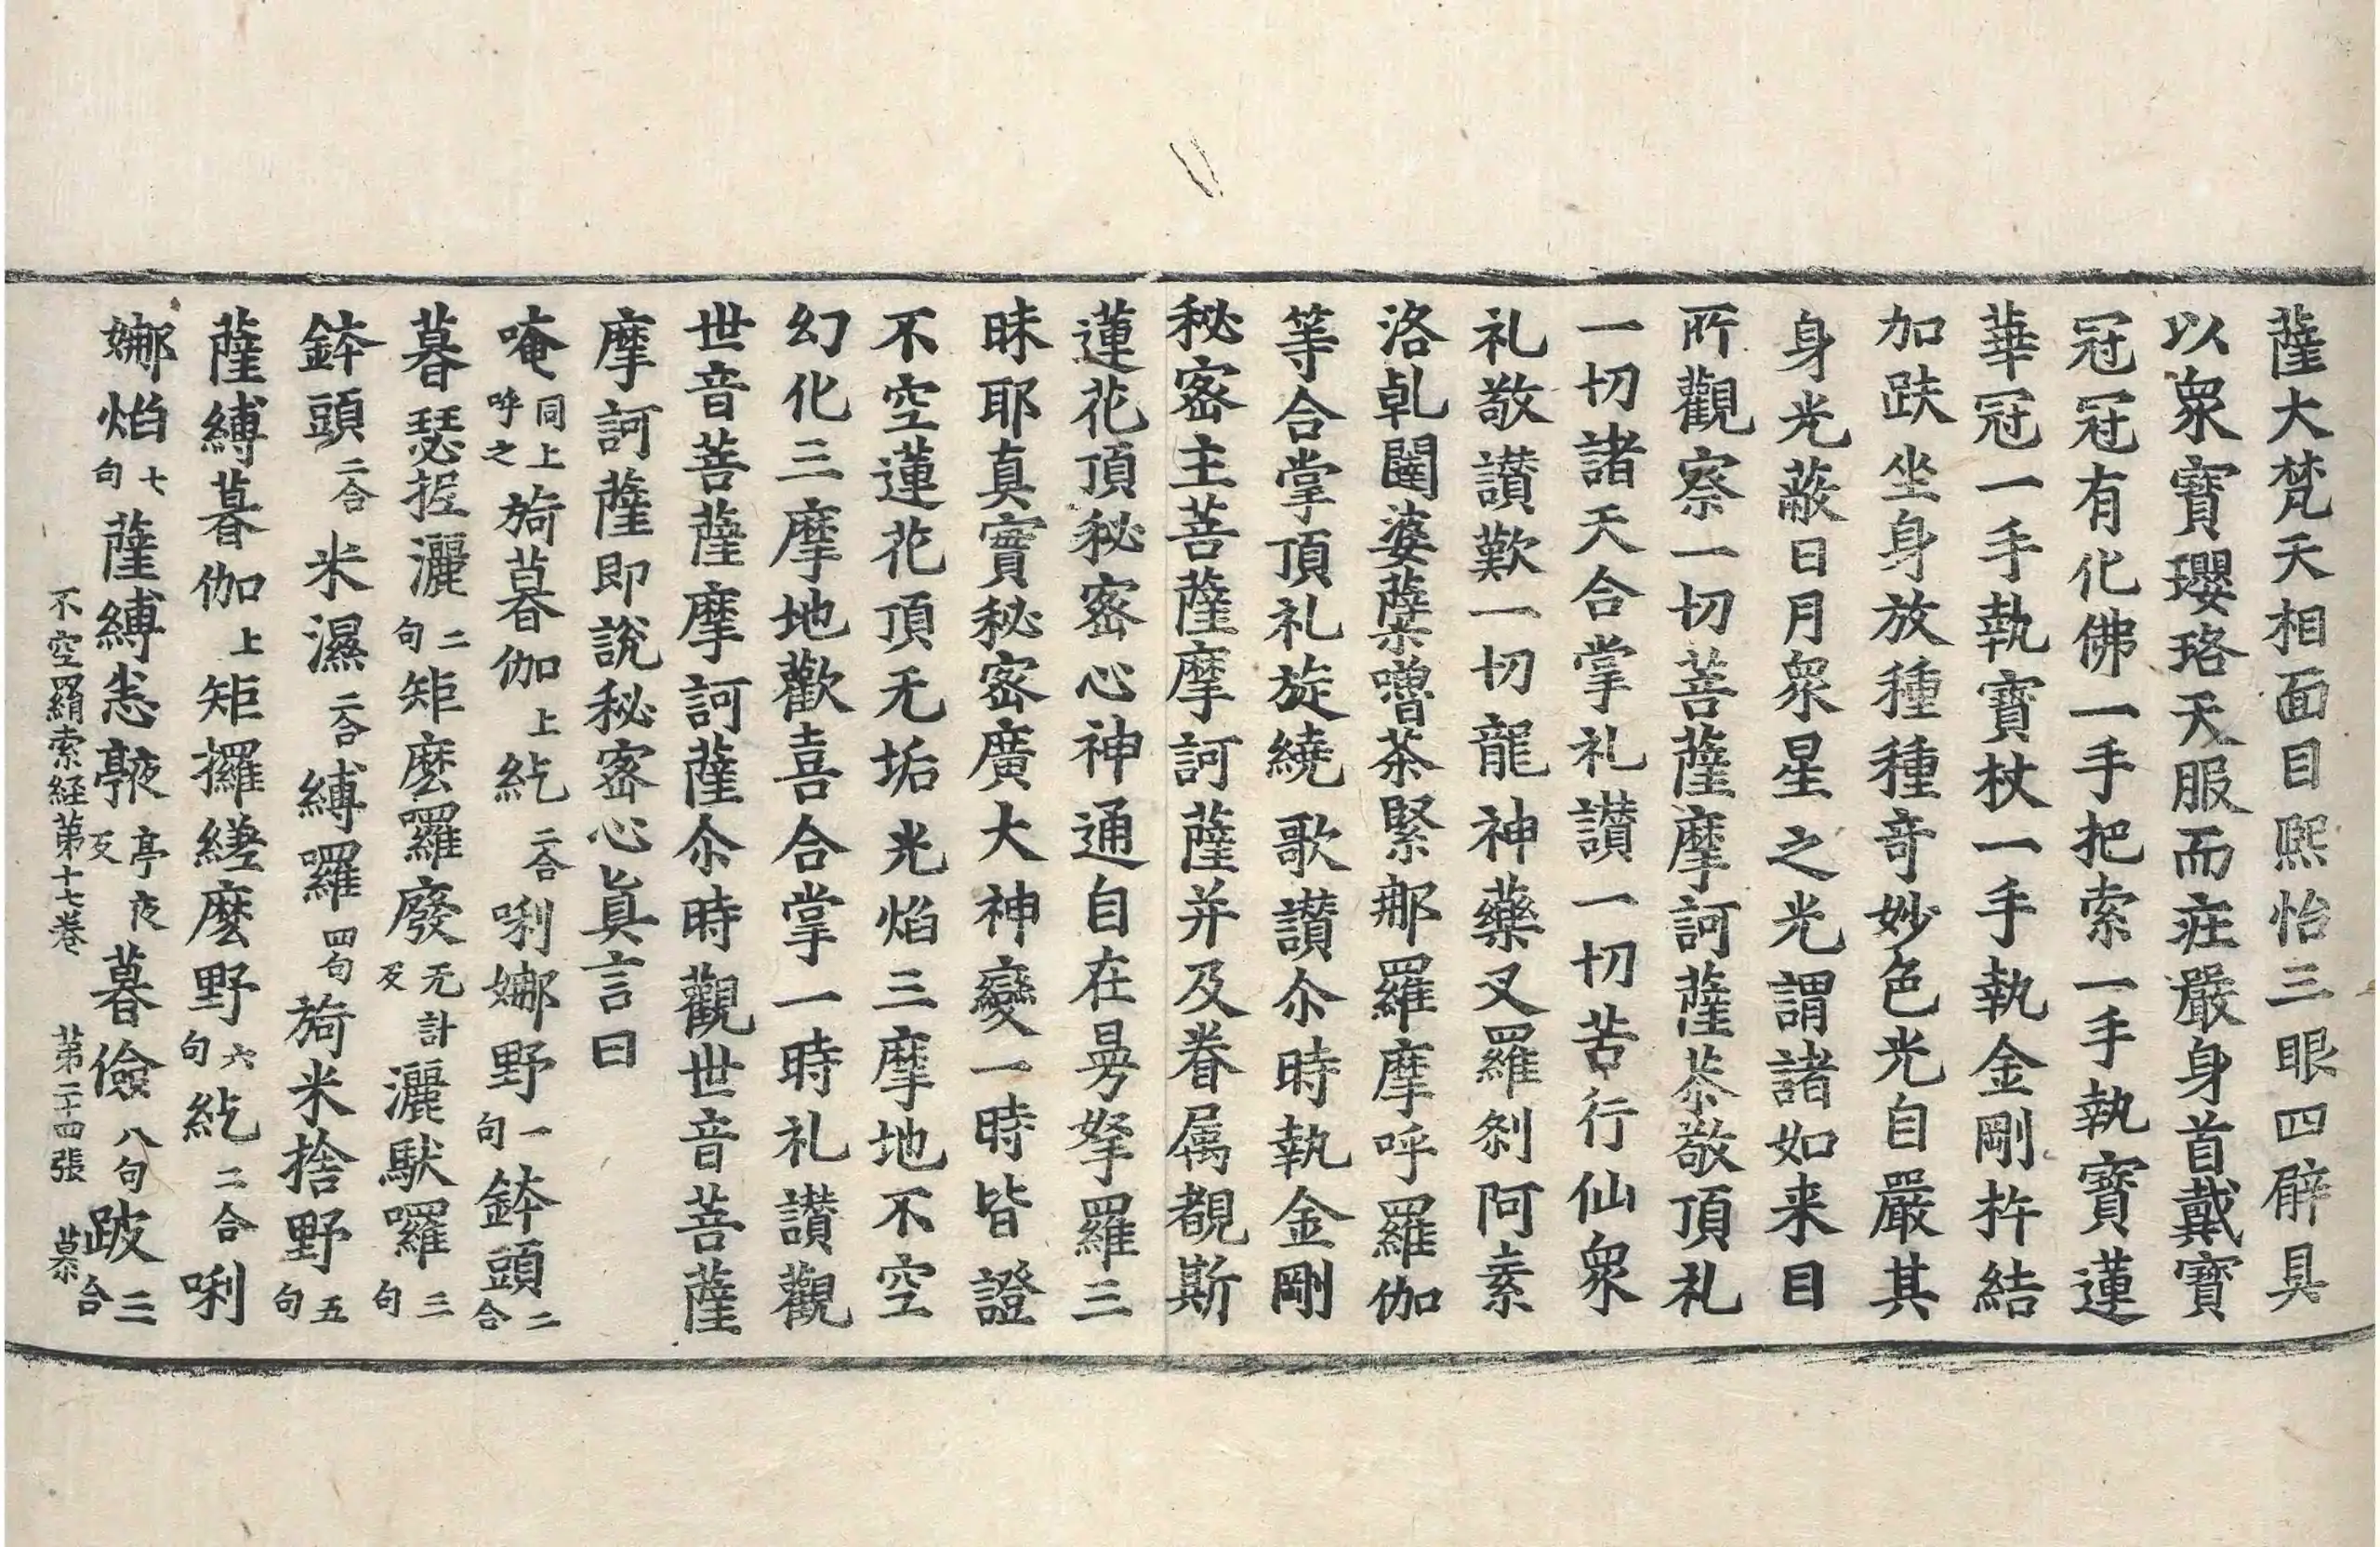 薩大梵天相面目熈怡三眼四臂具
以衆寶瓔珞天服而庄嚴身首戴寶
冠冠有化佛一手把索一手執寶蓮
華冠一手執寶杖一手執金剛杵結
加趺坐身放種種奇妙色光自嚴其
身光蔽日月衆星之光謂諸如来目
所觀察一切菩薩摩訶薩恭敬頂礼
一切諸天合掌礼讃一切苦行仙衆
礼敬讃歎一切龍神藥叉羅刹阿素
洛乹闥婆孽嚕茶緊那羅摩呼羅伽
等合掌頂礼旋繞歌讃尒時執金剛
秘密主菩薩摩訶薩并及眷属覩斯
蓮花頂秘密心神通自在曼拏羅三
昧耶真實秘密廣大神變一時皆證
不空蓮花頂无垢光焰三摩地不空
幻化三摩地歡喜合掌一時礼讃觀
世音菩薩摩訶薩尒時觀世音菩薩
摩訶薩即說秘密心真言曰
唵同上呼之旖暮伽上紇二合唎娜野一句鉢頭二合
暮瑟抳灑二句矩麽羅廢无計反灑馱囉三句
鉢頭二合米濕二合縛囉四句旖米捨野五句
薩縛暮伽上矩攞縒麽野六句紇二合唎
娜焰七句薩縛恚𩐳亭夜反暮儉八句跛三合
不空羂索経第十七卷 第二十四張 慕